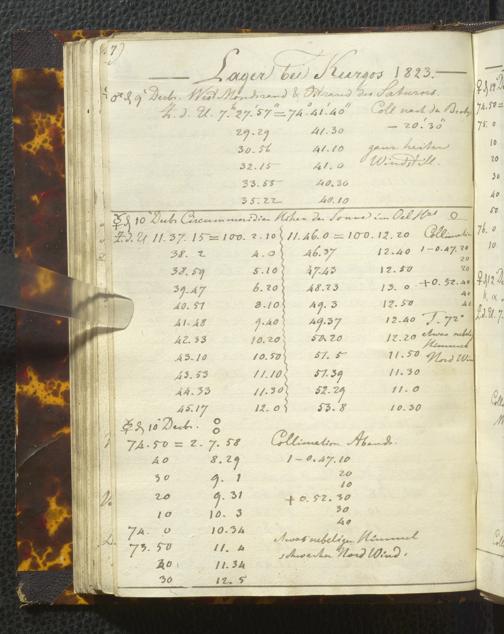 Lager bei Kurgos 1823.
♂ d 9 Decbr. West Mondrand & Ostrand des Saturns.
Z. d. U. 7.27.57 = 74.41.40 Coll nach der Beob
29.29 41.30 — 20.30
30.56 41.10 ganz heiter
32.15 41.0 Windstill.
33.55 40.30
35.22 40.10
☿ d 10 Decbr Circummeridian Höhen der Sonne im Oel Hzt ☉
Z. d. U 11.37.15 = 100.2.10 11.46.0 = 100.12.20 Collimation
38.2 4.0 46.37 12.40 1 - 0.47.20
38.59 5.10 47.43 12.50 20
39.47 6.20 48.23 13.0 + 0.52.40
40.51 8.10 49.3 12.50 40
41.48 9.40 49.37 12.40 T. 72°
42.33 10.20 50.20 12.20 etwas nebl.
43.10 10.50 51.5 11.50 Himmel Nord Win
43.53 11.10 51.39 11.30
44.33 11.30 52.29 11.0
45.17 12.0 53.8 10.30
☿ d 10 Decbr.
74.50 = 2.7.58 Collimation Abends.
40 8.29 1 - 0.47.10
30 9.1 20
10
20 9.31 + 0.52.30
10 10.3 30
40
74.0 10.34
73.50 11.4 etwas nebeliger Himmel
40 11.34 schwacher Nord Wind.
30 12.5